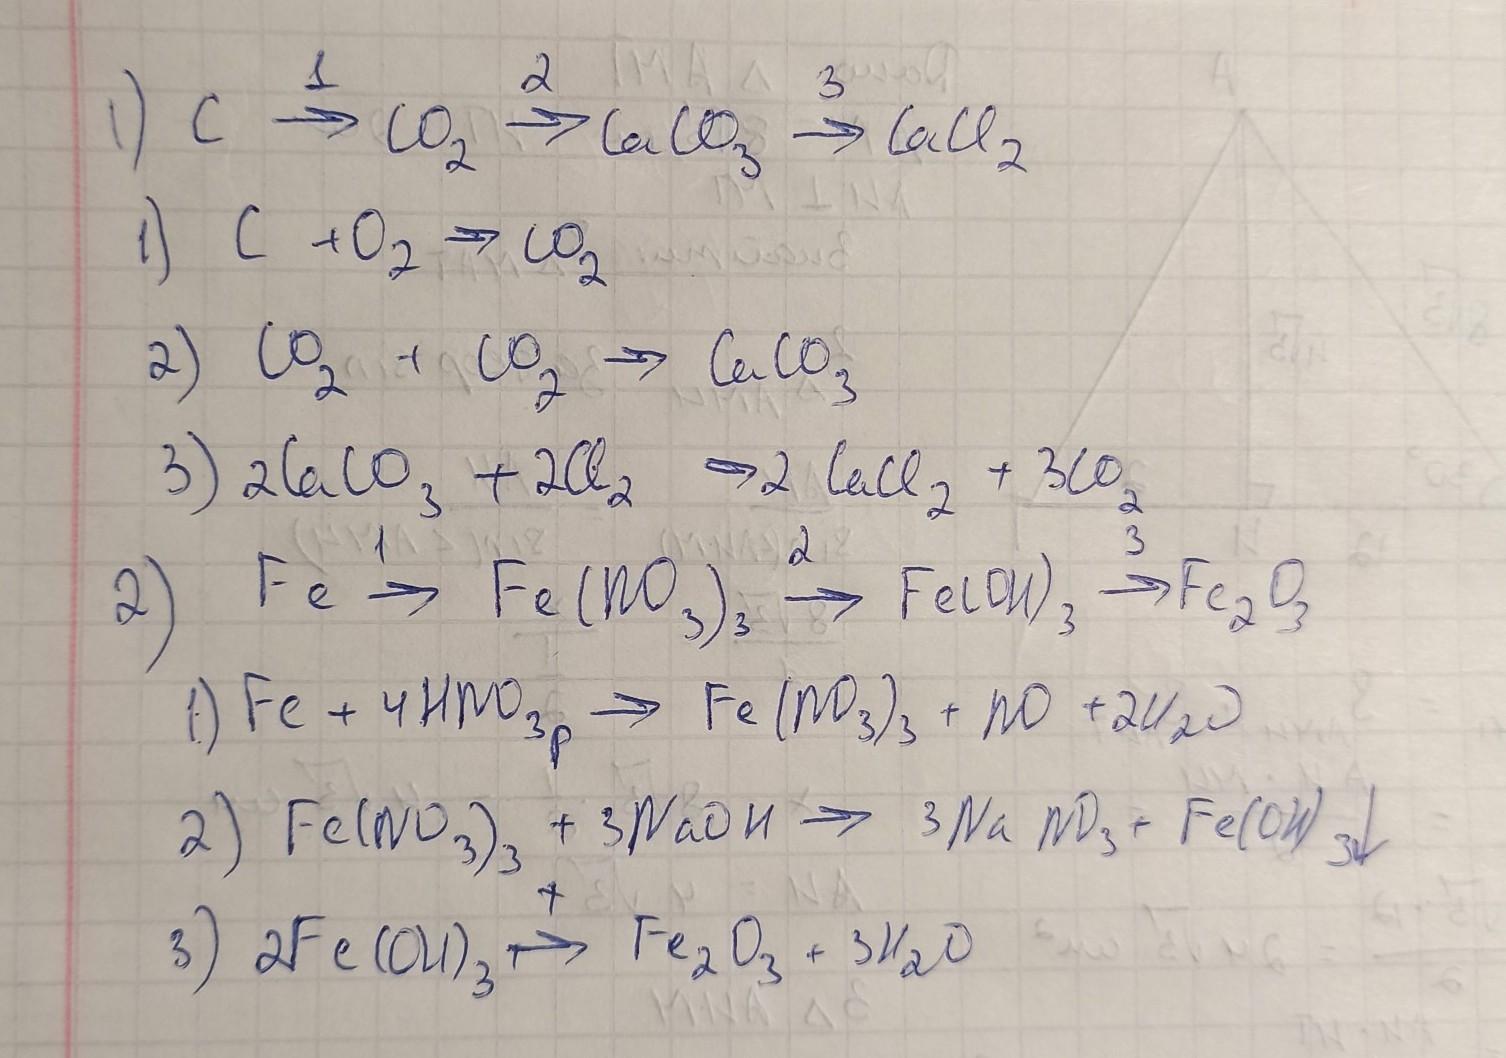 1) C →¹ CO₂ →² CaCO₃ →³ CaCl₂
1) C + O₂ → CO₂
2) CO₂ + CO₂ → CaCO₃
3) 2CaCO₃ + 2Cl₂ → 2CaCl₂ + 3CO₂
2) Fe →¹ Fe(NO₃)₃ →² Fe(OH)₃ →³ Fe₂O₃
1) Fe + 4HNO₃p → Fe(NO₃)₃ + NO + 2H₂O
2) Fe(NO₃)₃ + 3NaOH → 3NaNO₃ + Fe(OH)₃↓
3) 2Fe(OH)₃ →⁺ Fe₂O₃ + 3H₂O